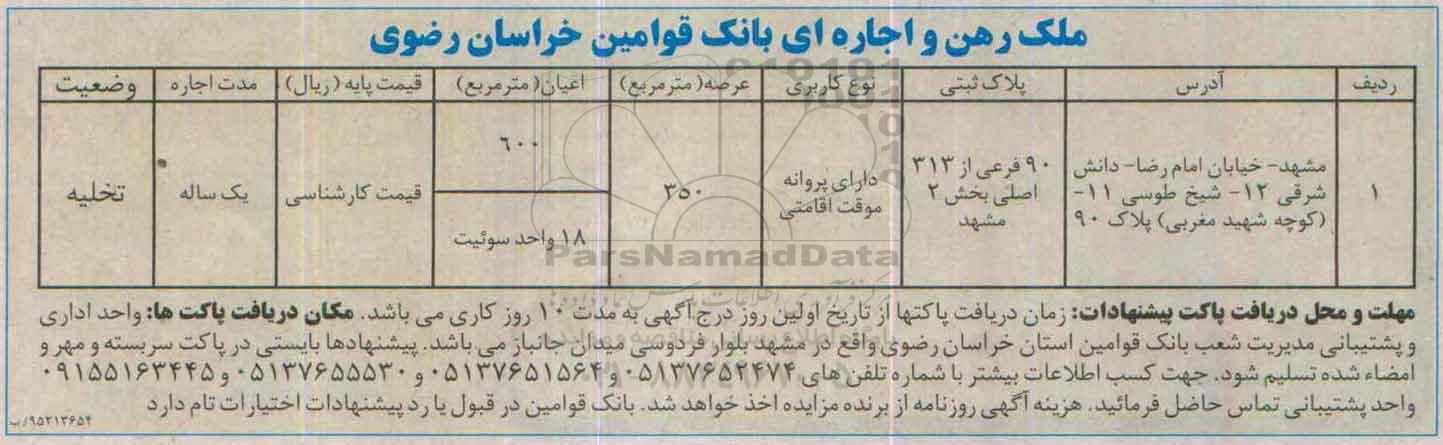 ملک رهن و اجاره ای بانک قوامین خراسان رضوی
ردیف آدرس پلاک ثبتی نوع کاربری عرصه( مترمربع) اعیان( مترمربع) قیمت پایه (ریال) مدت اجاره وضعیت
۱
مشهد- خیابان امام رضا- دانش
شرقی ۱۲- شیخ طوسی ۱۱-
(کوچه شهید مغربی) پلاک ۹۰
۹۰ فرعی از ۳۱۳
اصلی بخش ۲
مشهد
دارای پروانه
موقت اقامتی
۳۵۰
۶۰۰
۱۸ واحد سوئیت
قیمت کارشناسی
یک ساله
تخلیه
ParsNamadData
مهلت و محل دریافت پاکت پیشنهادات: زمان دریافت پاکتها از تاریخ اولین روز درج آگهی به مدت ۱۰ روز کاری می باشد. مکان دریافت پاکت ها: واحد اداری
و پشتیبانی مدیریت شعب بانک قوامین استان خراسان رضوی واقع در مشهد بلوار فردوسی میدان جانباز می باشد. پیشنهادها بایستی در پاکت سربسته و مهر و
امضاء شده تسلیم شود. جهت کسب اطلاعات بیشتر با شماره تلفن های ۰۵۱۳۷۶۵۲۴۷۴ و ۰۵۱۳۷۶۵۱۵۶۴ و ۰۵۱۳۷۶۵۵۵۳۰ و ۰۹۱۵۵۱۶۳۴۴۵
واحد پشتیبانی تماس حاصل فرمائید. هزینه آگهی روزنامه از برنده مزایده اخذ خواهد شد. بانک قوامین در قبول یا رد پیشنهادات اختیارات تام دارد
۹۵۲۱۳۶۵۴/ب